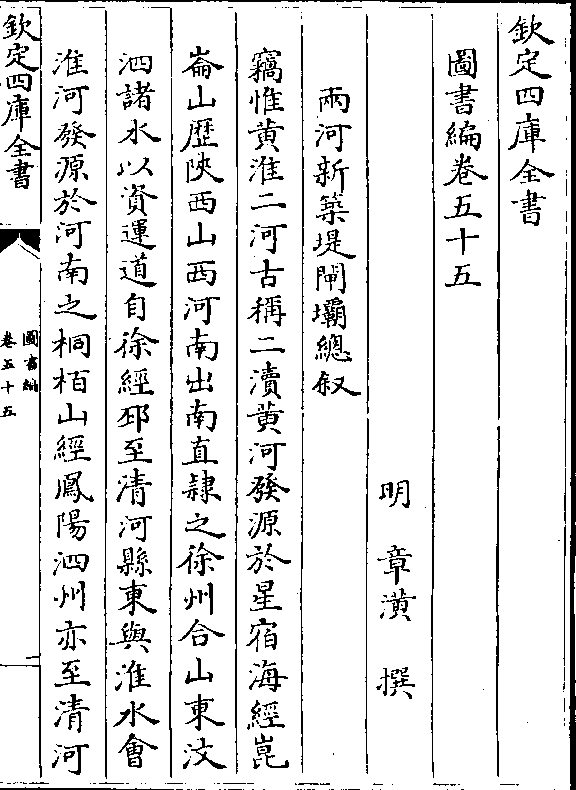 欽定四庫全書
圖書編卷五十五
明 章潢 撰
兩河新築堤閘壩總叙
竊惟黄淮二河古稱二瀆黄河發源於星宿海經崑
崙山歴陜西山西河南出南直隷之徐州合山東汶
泗諸水以資運道自徐經邳至清河縣東與淮水會
淮河發源於河南之桐栢山經鳳陽泗州亦至清河
欽定四庫全書
圖書編
卷五十五
一